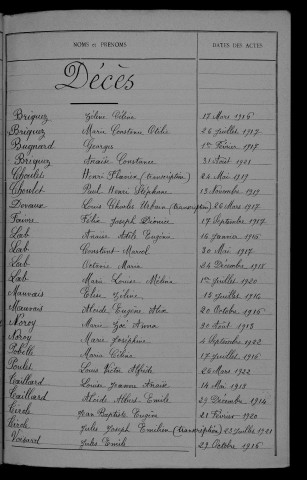 NOMS et PRÉNOMS DATES DES ACTES
Décès
Briquez Céline 17 Mars 1916
Briquez Marie Constance 26 Juillet 1917
Bugnard Georges 1er Février 1917
Briquez Constance 31 Août 1921
Choulet Henri (transcription) 24 Mai 1919
Choulet Paul Henri Stéphane 13 Novembre 1919
Devaux Louis Charles (transcription) 26 Mars 1917
Faivre Félix Joseph 17 Septembre 1917
Lab Eugène 16 Janvier 1916
Lab Constant Marcel 30 Mai 1917
Lab Marie 24 Décembre 1916
Lab Marie Louise 1er Juillet 1920
Mauvais Elise 13 Juillet 1914
Mauvais Alcide Eugène 20 Octobre 1916
Noroy Marie Zoé Anna 30 Août 1913
Noroy Marie Joséphine 4 Septembre 1922
Marie Céline 17 Juillet 1916
Poulet Louis Victor Alcide 26 Mars 1922
Taillard Jeanne 14 Mai 1913
Taillard Alcide Albert Emile 29 Décembre 1914
Cercle Jean Baptiste 21 Février 1920
Cercle Jules Joseph Emilien (transcription) 23 Juillet 1921
Voisard Jules Emile 29 Octobre 1916